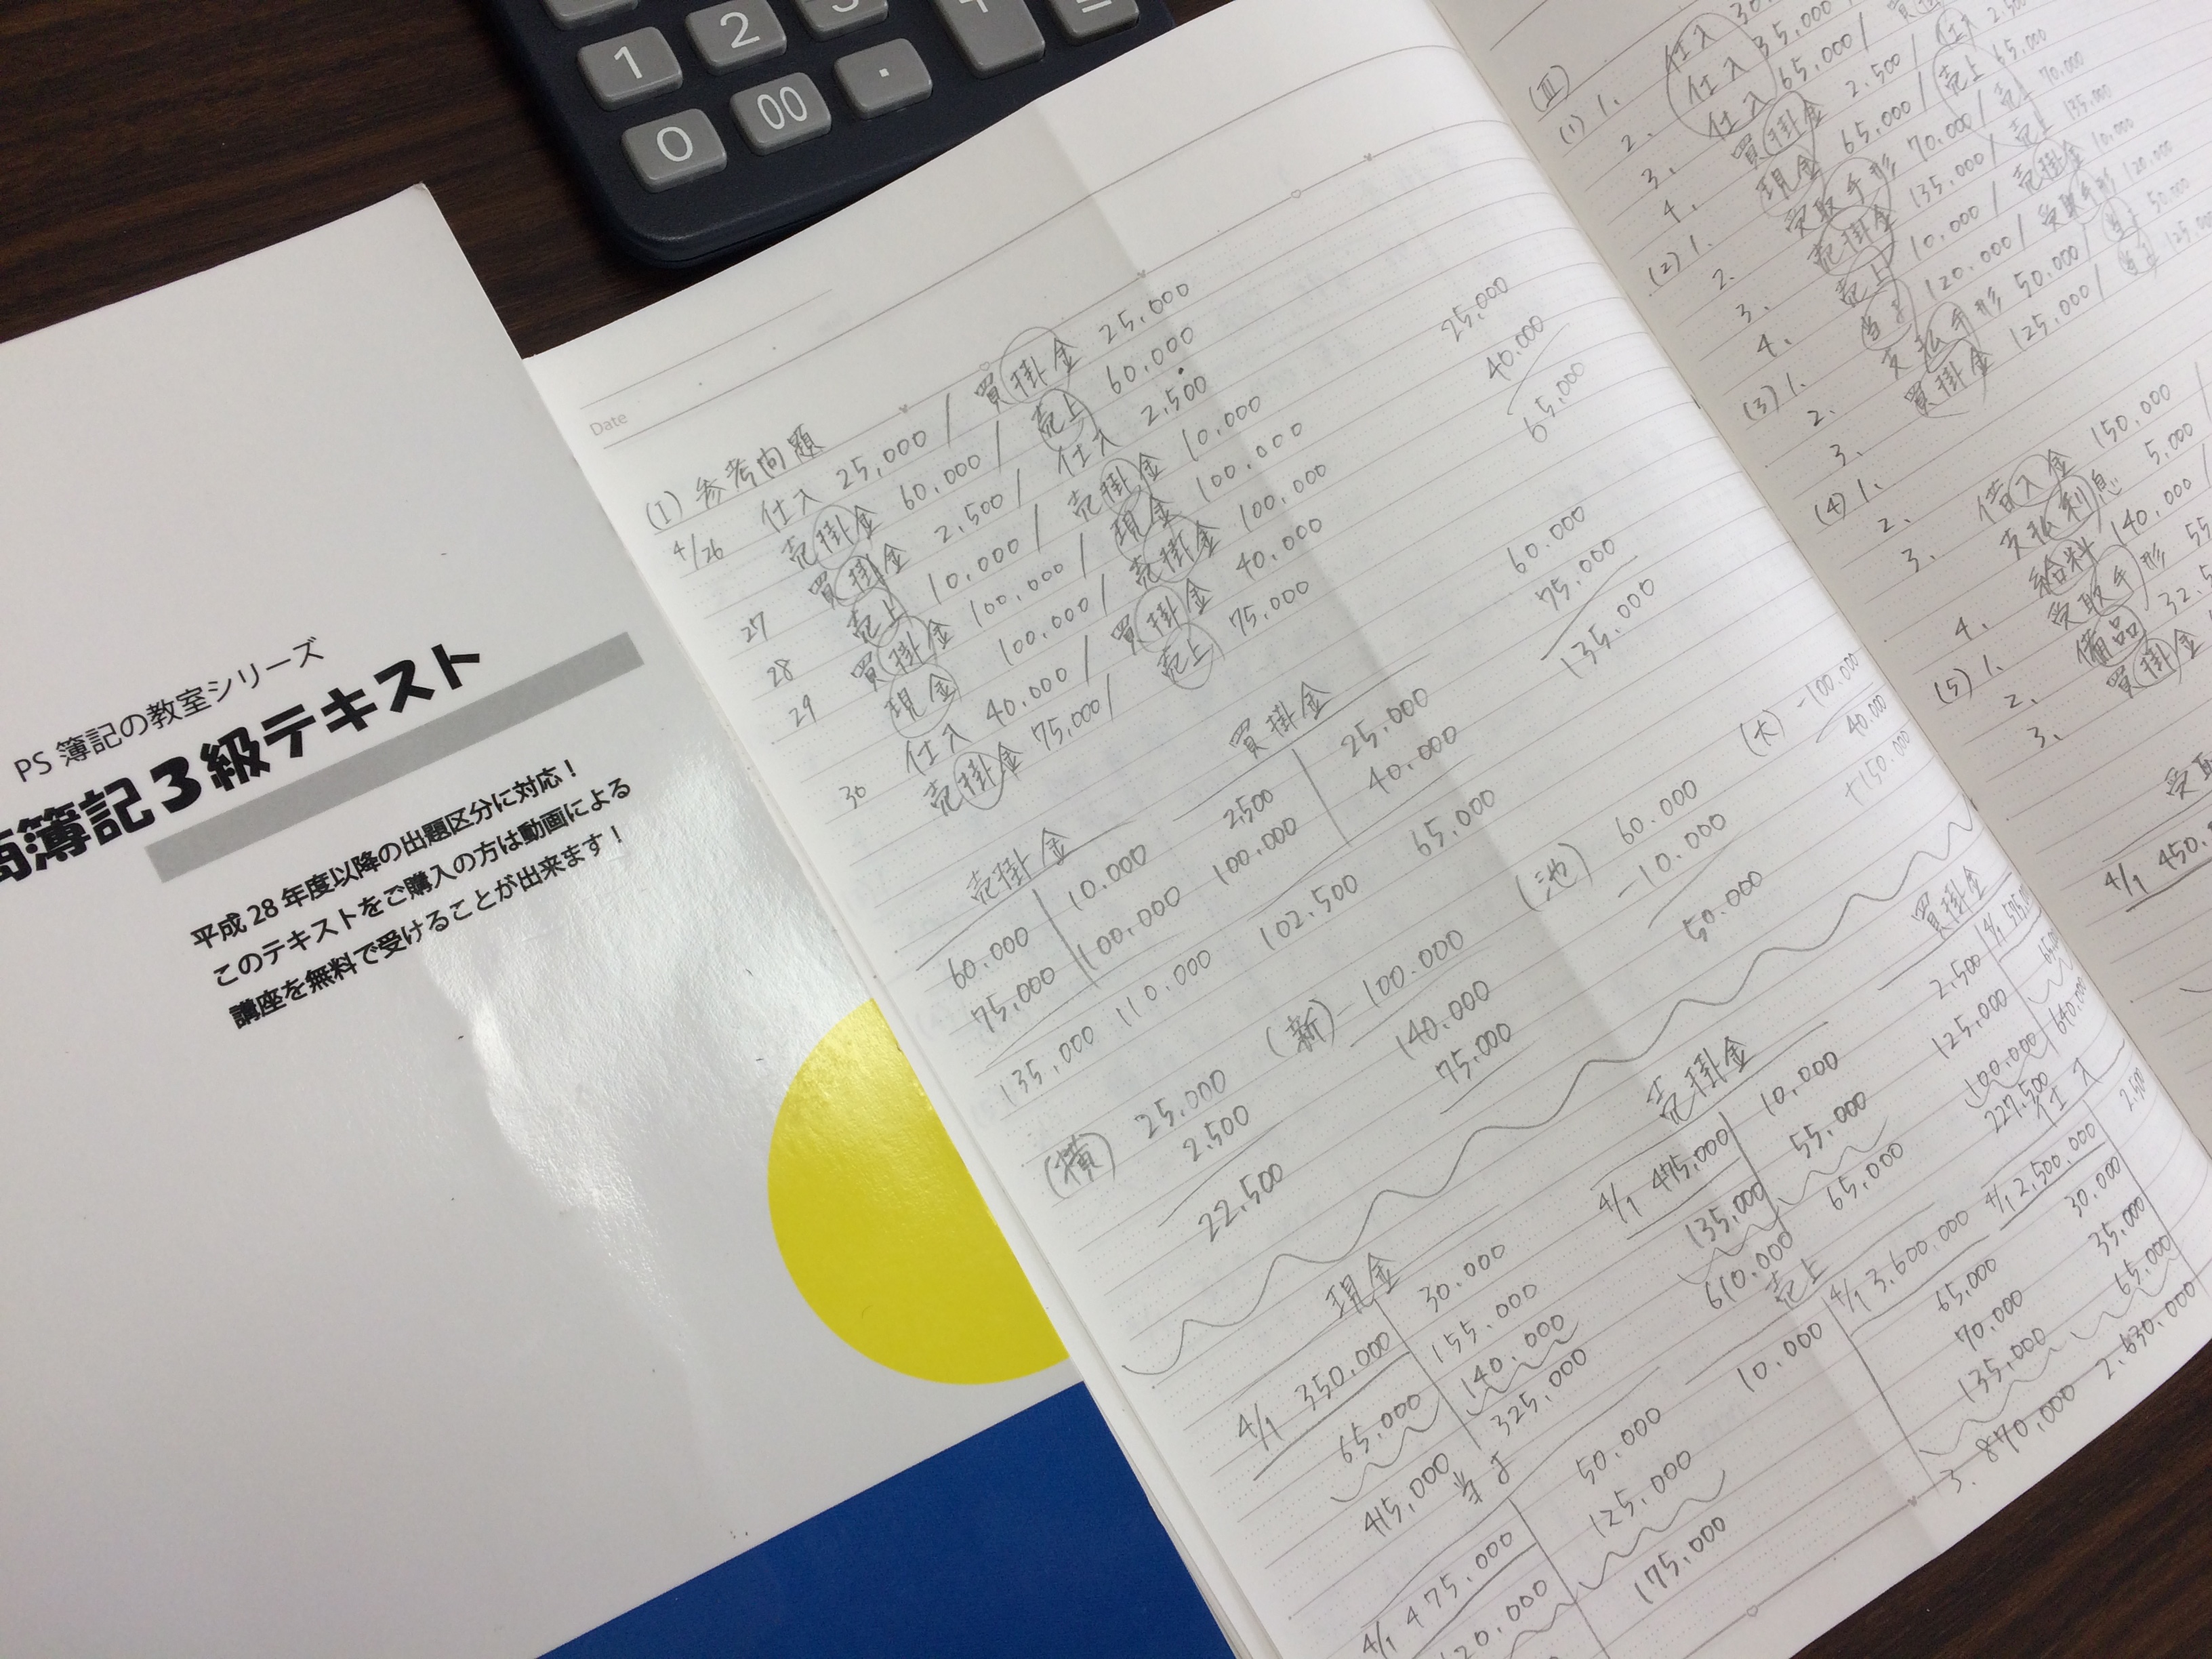 1
2
3
0
00
.
+
=
PS 簿記の教室シリーズ
商簿記3級テキスト
平成28年度以降の出題区分に対応！
このテキストをご購入の方は動画による
講座を無料で受けることが出来ます！
Date
(I) 参考問題
4/26 仕入 25,000 / 買掛金 25,000
売掛金 60,000 / 売上 60,000
27 買掛金 2,500 / 仕入 2,500
28 売上 10,000 / 売掛金 10,000
29 買掛金 100,000 / 現金 100,000
現金 100,000 / 売掛金 100,000
30 仕入 40,000 / 買掛金 40,000
売掛金 75,000 / 売上 75,000
25,000
40,000
65,000
60,000
75,000
135,000
売掛金
60,000 10,000
75,000 100,000
135,000 110,000
買掛金
2,500 25,000
100,000 40,000
102,500 65,000
(横) 25,000
2,500
22,500
(新) -100,000
140,000
75,000
(池) 60,000
-10,000
50,000
(大) -100,000
40,000
+150,000
現金
4/1 350,000 30,000
65,000 155,000
140,000
415,000 325,000
売掛金
4/1 475,000 10,000
135,000 55,000
610,000 65,000
買掛金
2,500
125,000
100,000 640,000
227,500
当予
4/1 475,000 50,000
120,000 125,000
175,000
売上
10,000 4/1 3,600,000
65,000
70,000
135,000
3,870,000
仕入
4/1 2,500,000 2,500
30,000
35,000
65,000
2,630,000
(III)
(1) 1. 仕入
2. 仕入 35,000
3. 仕入 65,000 /
4. 買掛金 2,500 / 仕入 2,500
(2) 1. 現金 65,000 / 売上 65,000
2. 受取手形 70,000 / 売上 70,000
3. 売掛金 135,000 / 売上 135,000
4. 売上 10,000 / 売掛金 10,000
(3) 1. 当予 120,000 / 受取手形 120,000
2. 支払手形 50,000 / 当予 50,000
3. 買掛金 125,000 / 当予 125,000
(4) 1. 借入金 150,000
2. 支払利息 5,000
3. 給料 140,000 /
4. 受取手形
(5) 1. 備品
2. 買掛金
3.